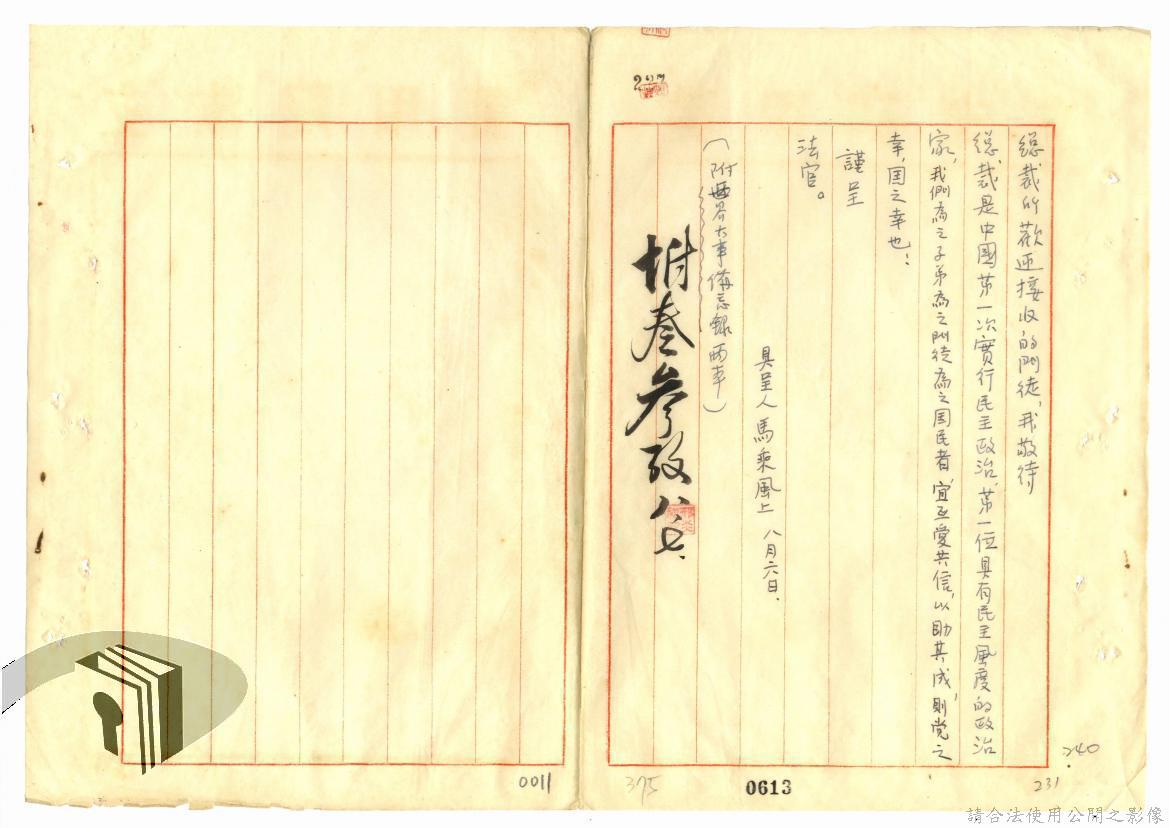 總裁所歡迎接收的門徒，我敬待
總裁是中國第一次實行民主政治，第一位具有民主風度的政治
家，我們為之子弟為之門徒為之国民者，宜互愛共信，以助其成，則党之
幸，国之幸也！
謹呈
法官。
具呈人 馬乘風上 八月六日．
（附世界大事備忘錄兩本）
附卷參攷 八、七．
240
231
0613
375
0011
請合法使用公開之影像